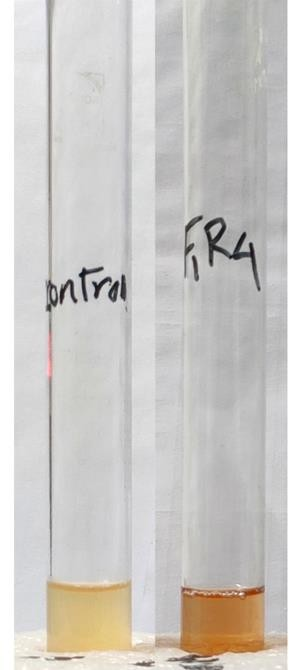 control
F1R4